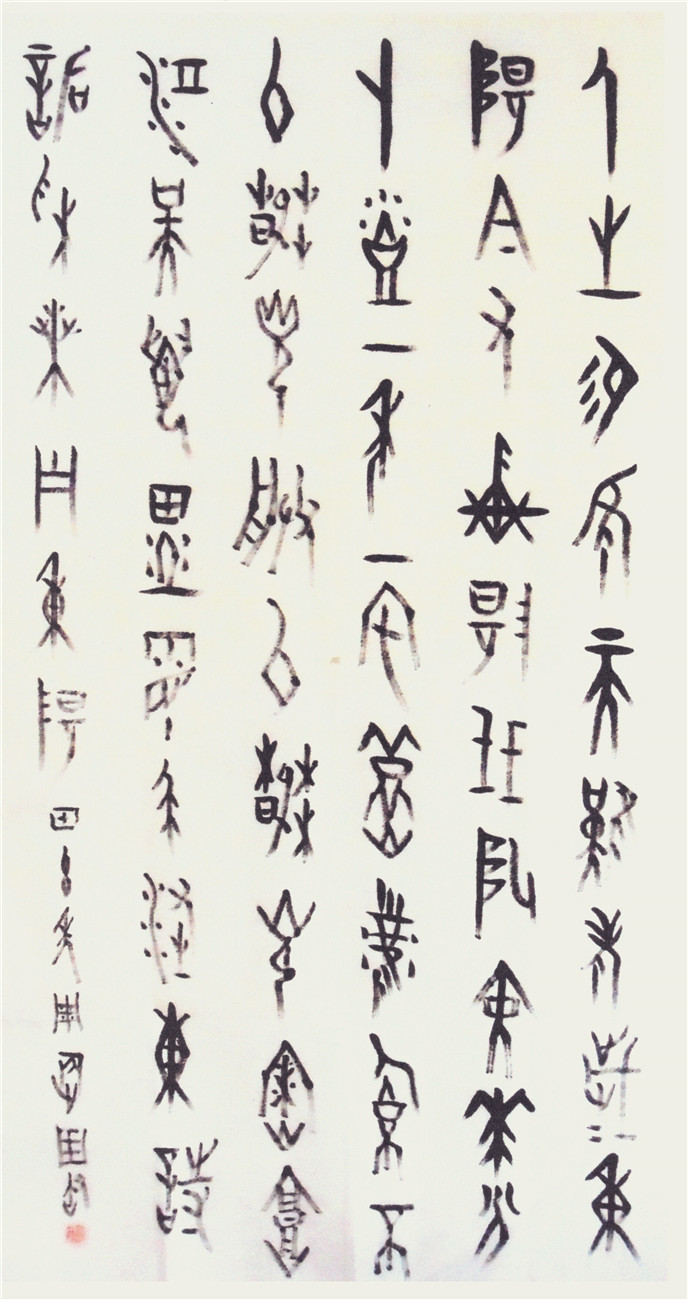 人生易老天難老歲=重
陽今又重陽戰地黃花分
外香一年一度秋風勁不
似春光勝似春光寥廓
江天萬里霜毛澤東詩
詞采桑子重陽